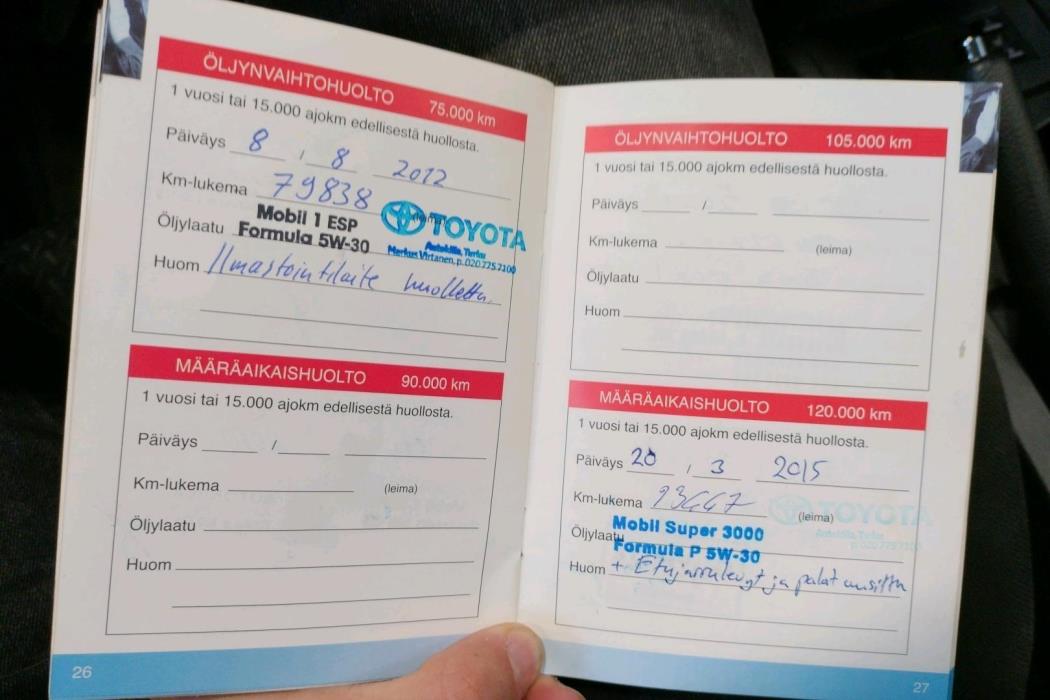 ÖLJYNVAIHTOHUOLTO 75.000 km
1 vuosi tai 15.000 ajokm edellisestä huollosta.
Päiväys 8 / 8 2012
Km-lukema 79838
TOYOTA
Autokilla, Turku
Markus Virtanen, p. 020 775 7100
Öljylaatu Mobil 1 ESP
Formula 5W-30
Huom Ilmastointilaite huollettu.
MÄÄRÄAIKAISHUOLTO 90.000 km
1 vuosi tai 15.000 ajokm edellisestä huollosta.
Päiväys /
Km-lukema (leima)
Öljylaatu
Huom
26
ÖLJYNVAIHTOHUOLTO 105.000 km
1 vuosi tai 15.000 ajokm edellisestä huollosta.
Päiväys /
Km-lukema (leima)
Öljylaatu
Huom
MÄÄRÄAIKAISHUOLTO 120.000 km
1 vuosi tai 15.000 ajokm edellisestä huollosta.
Päiväys 20 / 3 2015
Km-lukema (leima)
TOYOTA
Öljylaatu Mobil Super 3000
Formula P 5W-30
Huom + Etujarrulevyt ja palat uusittu
27